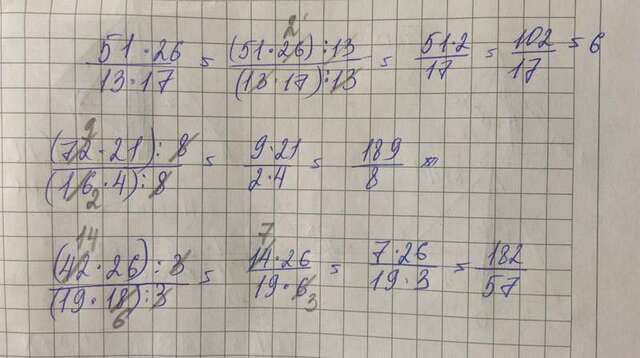 2
51·26/13·17 = (51·26):13/(13·17):13 = 51·2/17 = 102/17 = 6
9
(72·21):8/(16·4):8 = 9·21/2·4 = 189/8 =
2
14 7
(42·26):3/(19·18):3 = 14·26/19·6 = 7·26/19·3 = 182/57
6 3